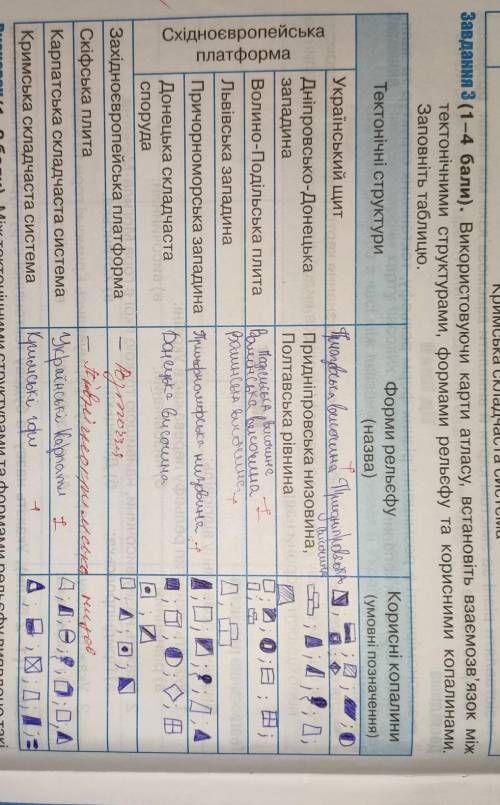 Кримська складчаста система
Завдання 3 (1–4 бали). Використовуючи карти атласу, встановіть взаємозв'язок між
тектонічними структурами, формами рельєфу та корисними копалинами.
Заповніть таблицю.
Тектонічні структури
Форми рельєфу
(назва)
Корисні копалини
(умовні позначення)
Східноєвропейська
платформа
Український щит
Приазовська височина Придніпровська
височина
Дніпровсько-Донецька
западина
Придніпровська низовина,
Полтавська рівнина
Волино-Подільська плита
Подільська височина
Волинська височина
Львівська западина
Причорноморська западина
Причорноморська низовина
Донецька складчаста
споруда
Донецька височина
Західноєвропейська платформа
–
Скіфська плита
–
низов
Карпатська складчаста система
Українські Карпати
Кримська складчаста система
Кримські гори
Між тектонічними структурами та формами рельєфу